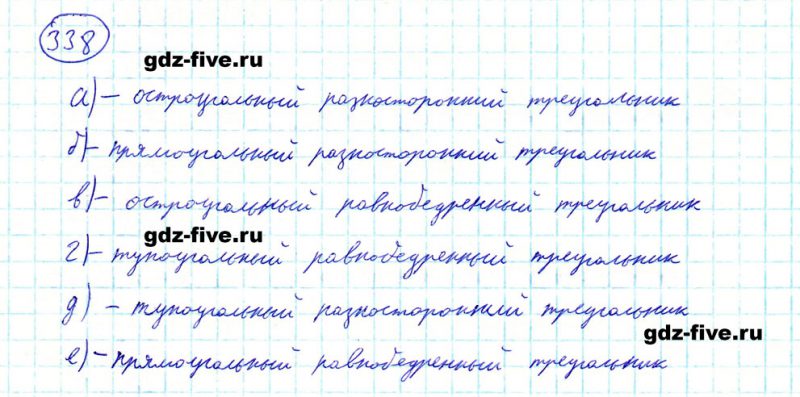 338
gdz-five.ru
а) - остроугольный разносторонний треугольник
б) - прямоугольный разносторонний треугольник
в) - остроугольный равнобедренный треугольник
gdz-five.ru
г) - тупоугольный равнобедренный треугольник
д) - тупоугольный разносторонний треугольник
gdz-five.ru
е) - прямоугольный равнобедренный треугольник